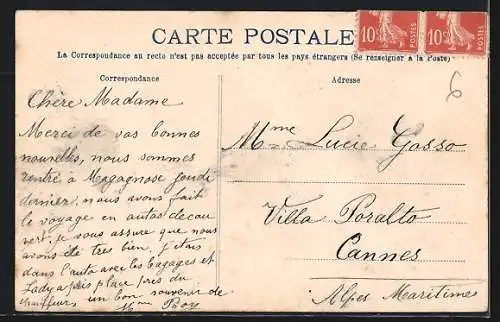 CARTE POSTALE
10c POSTES 10c POSTES
La Correspondance au recto n'est pas acceptée par tous les pays étrangers (Se renseigner à la Poste)
Correspondance
Adresse
6
Chère Madame
Merci de vos bonnes
nouvelles, nous sommes
rentré à Magagnosc jeudi
dernier, nous avons fait
le voyage en autos décou
vert, je vous assure que nous
avons été tres bien, j'étais
dans l'auto avec les bagages et
Lady a pris place près du
chauffeur, un bon souvenir de
Mme
Mme Lucie Gosso
Villa Poralto
Cannes
Alpes Maritimes